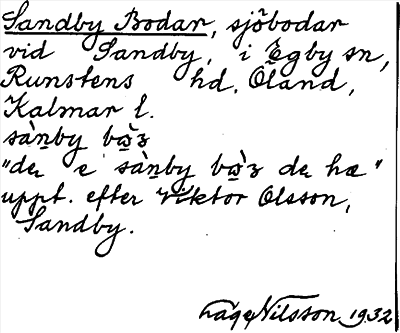 Sandby Bodar, sjöbodar
vid Sandby, i Egby sn,
Runstens hd, Öland,
Kalmar l.
sàn̲by bὼ̲ɜ
"de e sàn̲by bὼ̲ɜ de hæ"
uppt. efter Viktor Olsson,
Sandby.
Nilsson 1932